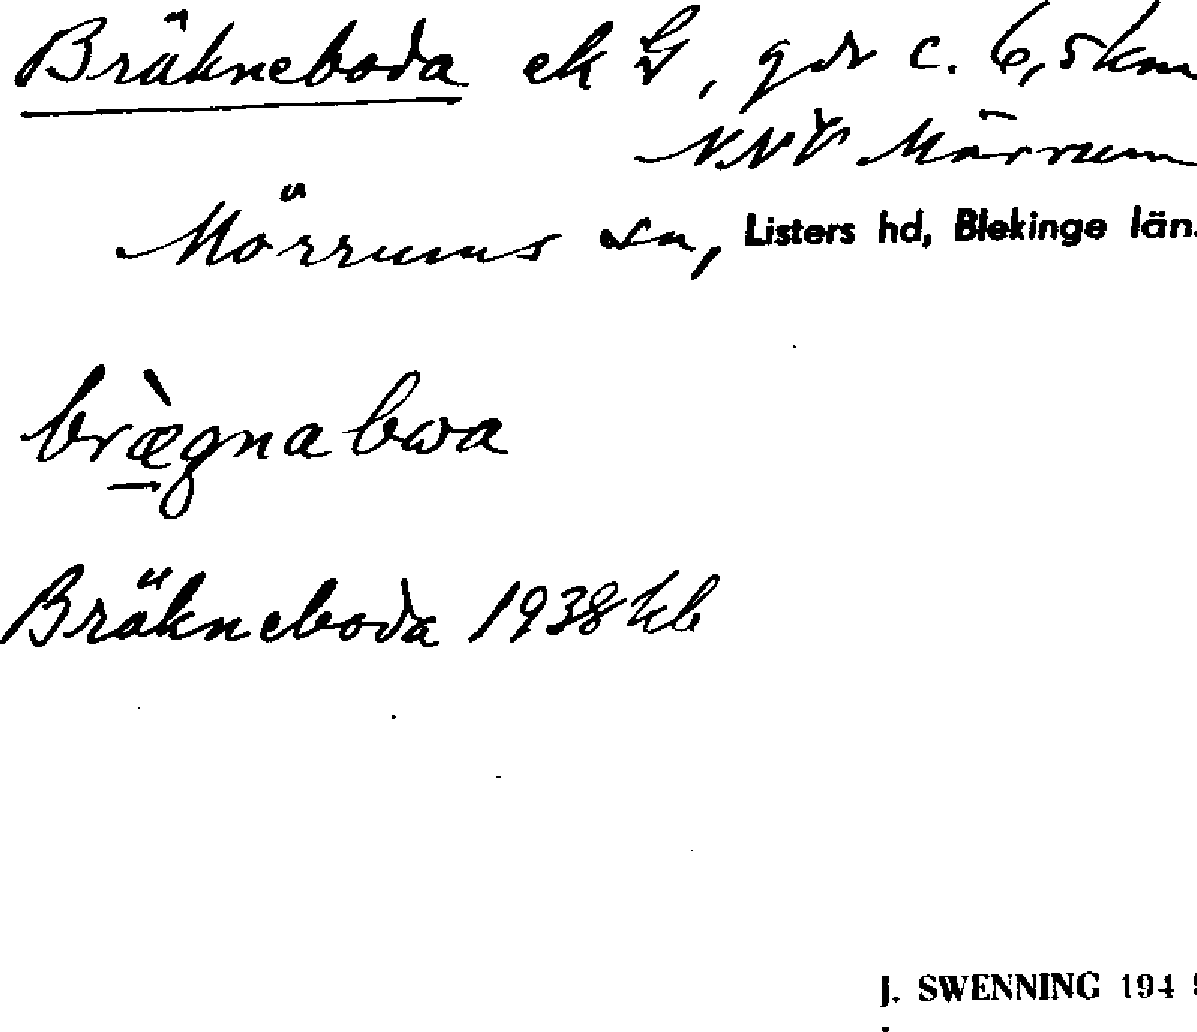 Bräkneboda ek G, gdr c. 6,5 km
NNV Mörrum
Mörrums sn, Listers hd, Blekinge län.
brægnabwa
Bräkneboda 1938 kb
J. SWENNING 194